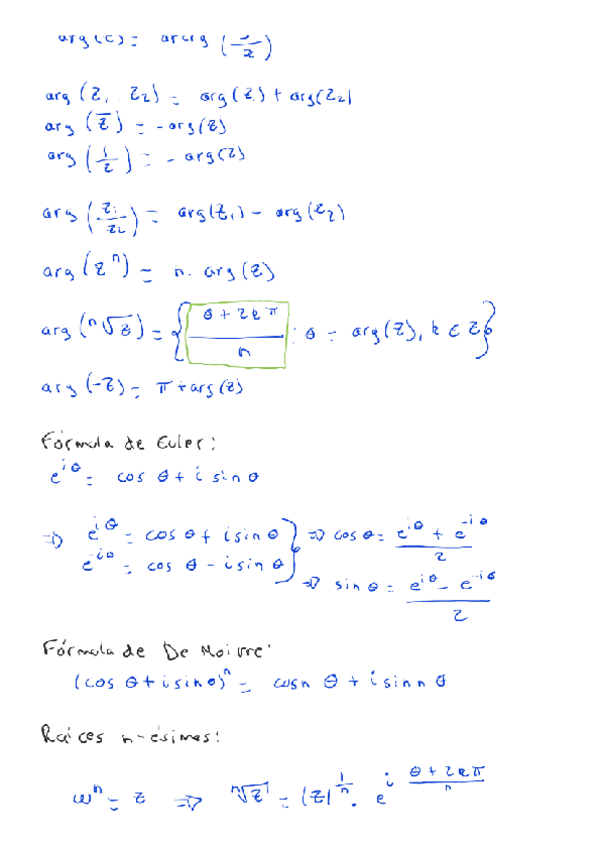 arg(c) = arctg (—/x)
arg (z₁ z₂) = arg(z₁) + arg(z₂)
arg (z̅) = -arg(z)
arg (1/z) = - arg(z)
arg (z₁/z₂) = arg(z₁) - arg(z₂)
arg (zⁿ) = n. arg(z)
arg (ⁿ√z) = { (θ + 2kπ)/n : θ = arg(z), k ∈ Z }
arg (-z) = π + arg(z)
Fórmula de Euler:
e^{iθ} = cos θ + i sin θ
⇒ e^{iθ} = cos θ + i sin θ } ⇒ cos θ = (e^{iθ} + e^{-iθ})/2
e^{-iθ} = cos θ - i sin θ } ⇒ sin θ = (e^{iθ} - e^{-iθ})/2
Fórmula de De Moivre:
(cos θ + i sin θ)ⁿ = cos n θ + i sin n θ
Raíces n-ésimas:
ωⁿ = z ⇒ ⁿ√z = |z|^{1/n} . e^{i (θ + 2kπ)/n}